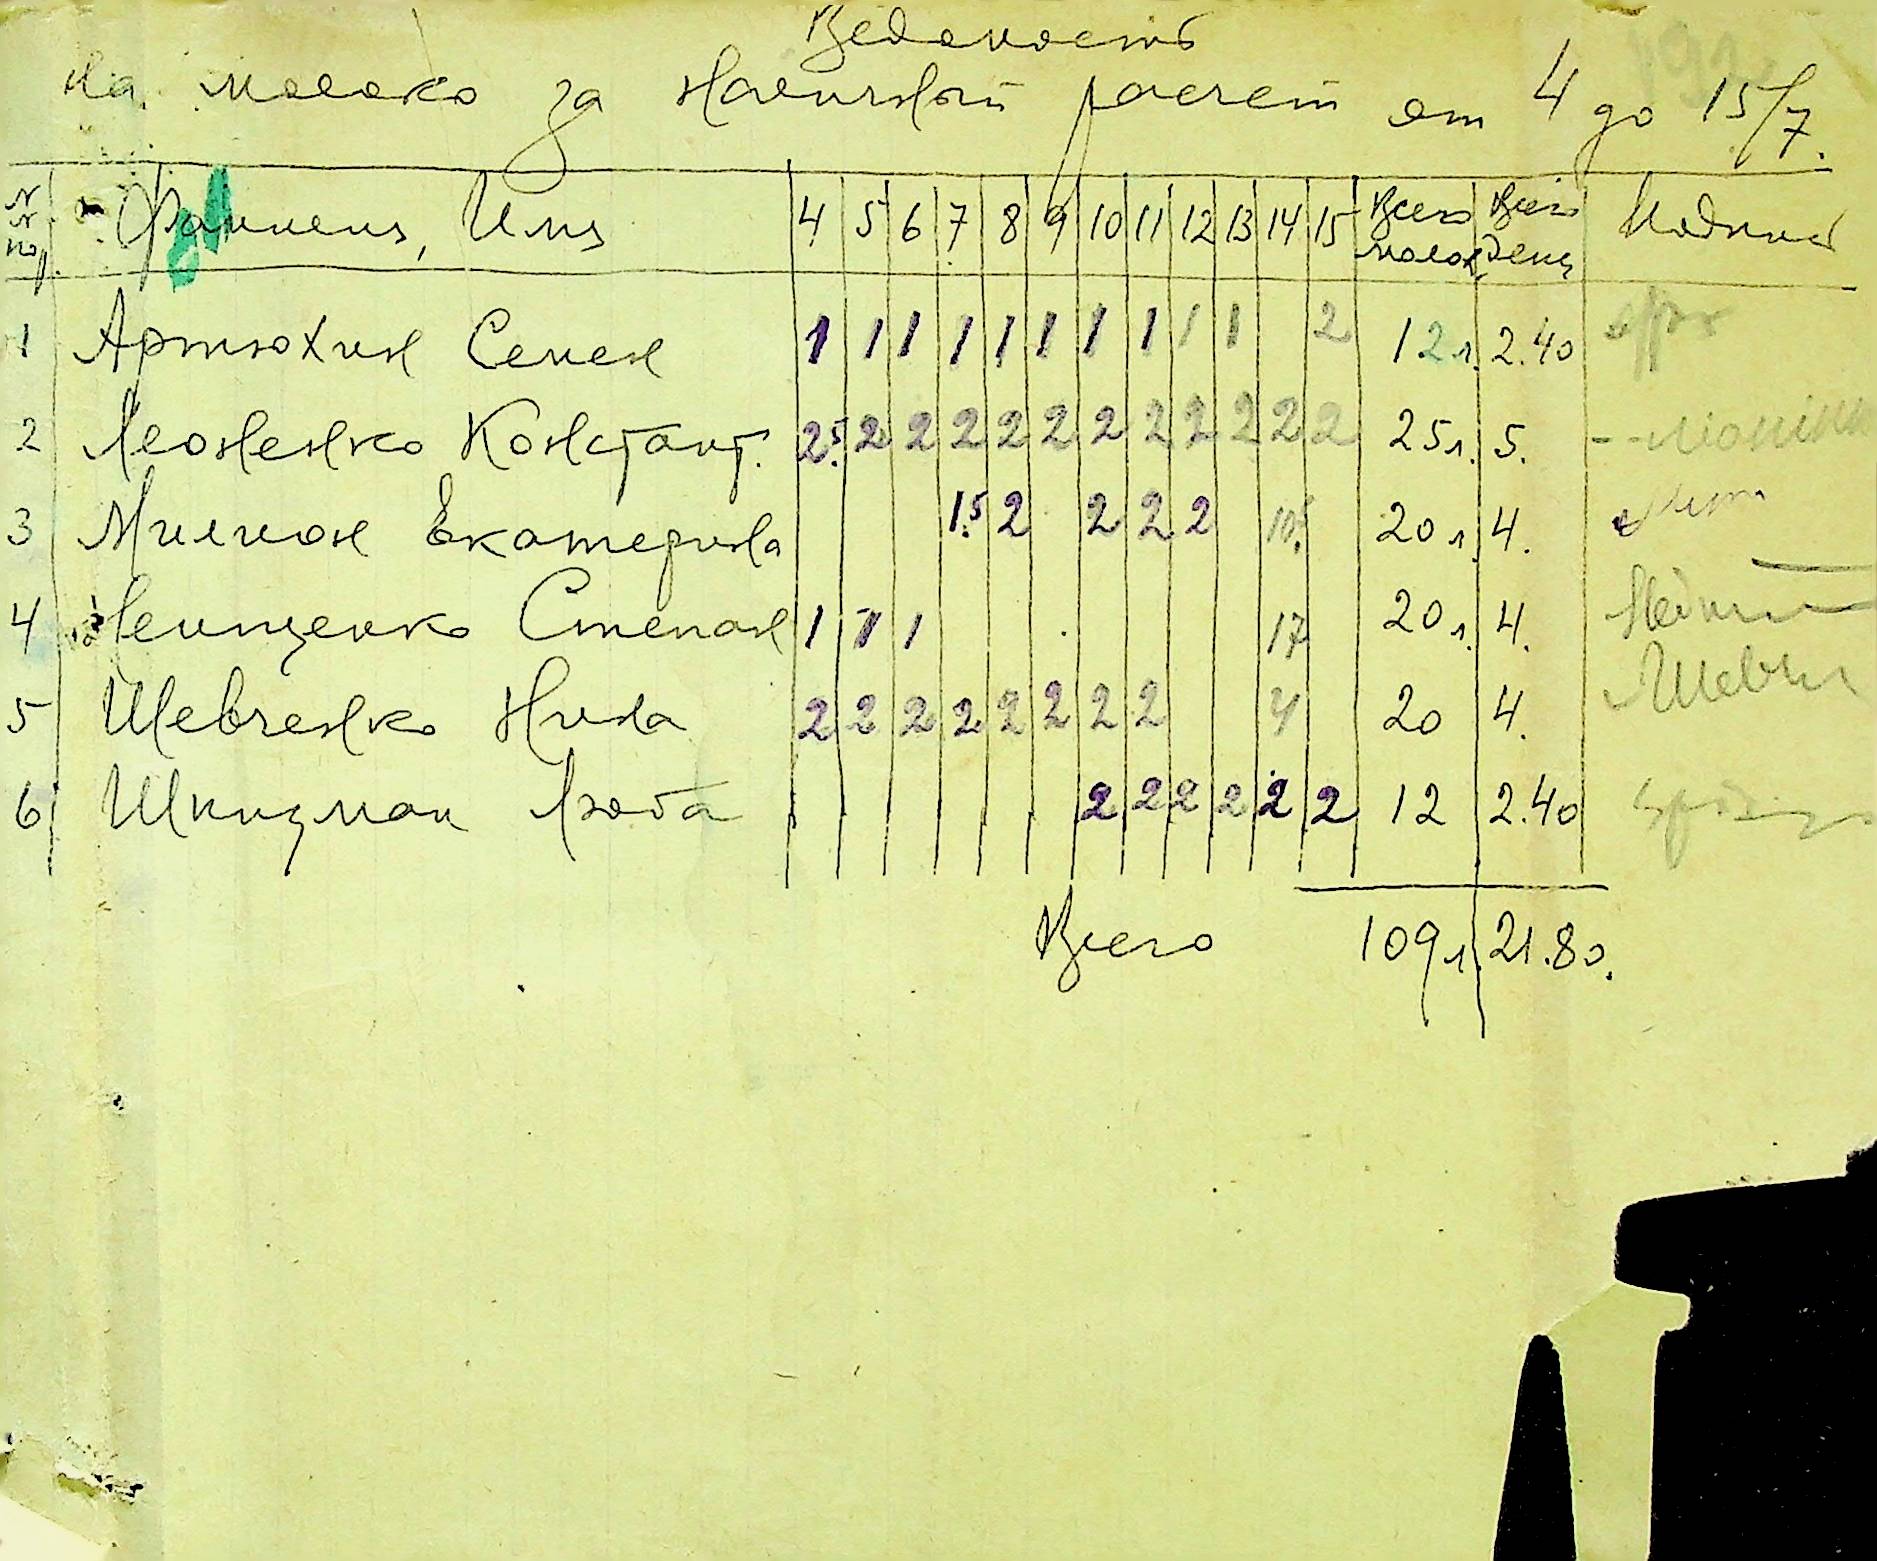 Ведомость
на молоко за наличный расчет от 4 до 15/7.
N N пор. Фамилия, Имя 4 5 6 7 8 9 10 11 12 13 14 15 Всего молок. Всего денг Подпись
1 Артюхин Семен 1 1 1 1 1 1 1 1 1 1 2 12 л. 2.40
2 Леоненко Констант. 2.5 2 2 2 2 2 2 2 2 2 2 2 25 л. 5.
3 Милион Екатерина 1.5 2 2 2 2 10.5 20 л. 4.
4 Степан 1 1 1 17 20 л. 4.
5 Шевченко Нина 2 2 2 2 2 2 2 2 4 20 4. Шевч
6 Шкицман Люба 2 2 2 2 2 2 12 2.40
Всего 109 л. 21.80.